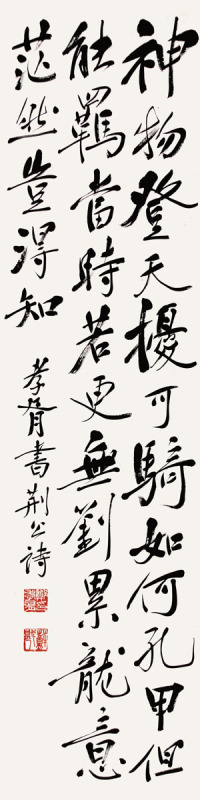 神物登天擾可騎如何孔甲但
能羈當時若更無劉累龍意
茫然豈得知
孝胥書荊公詩